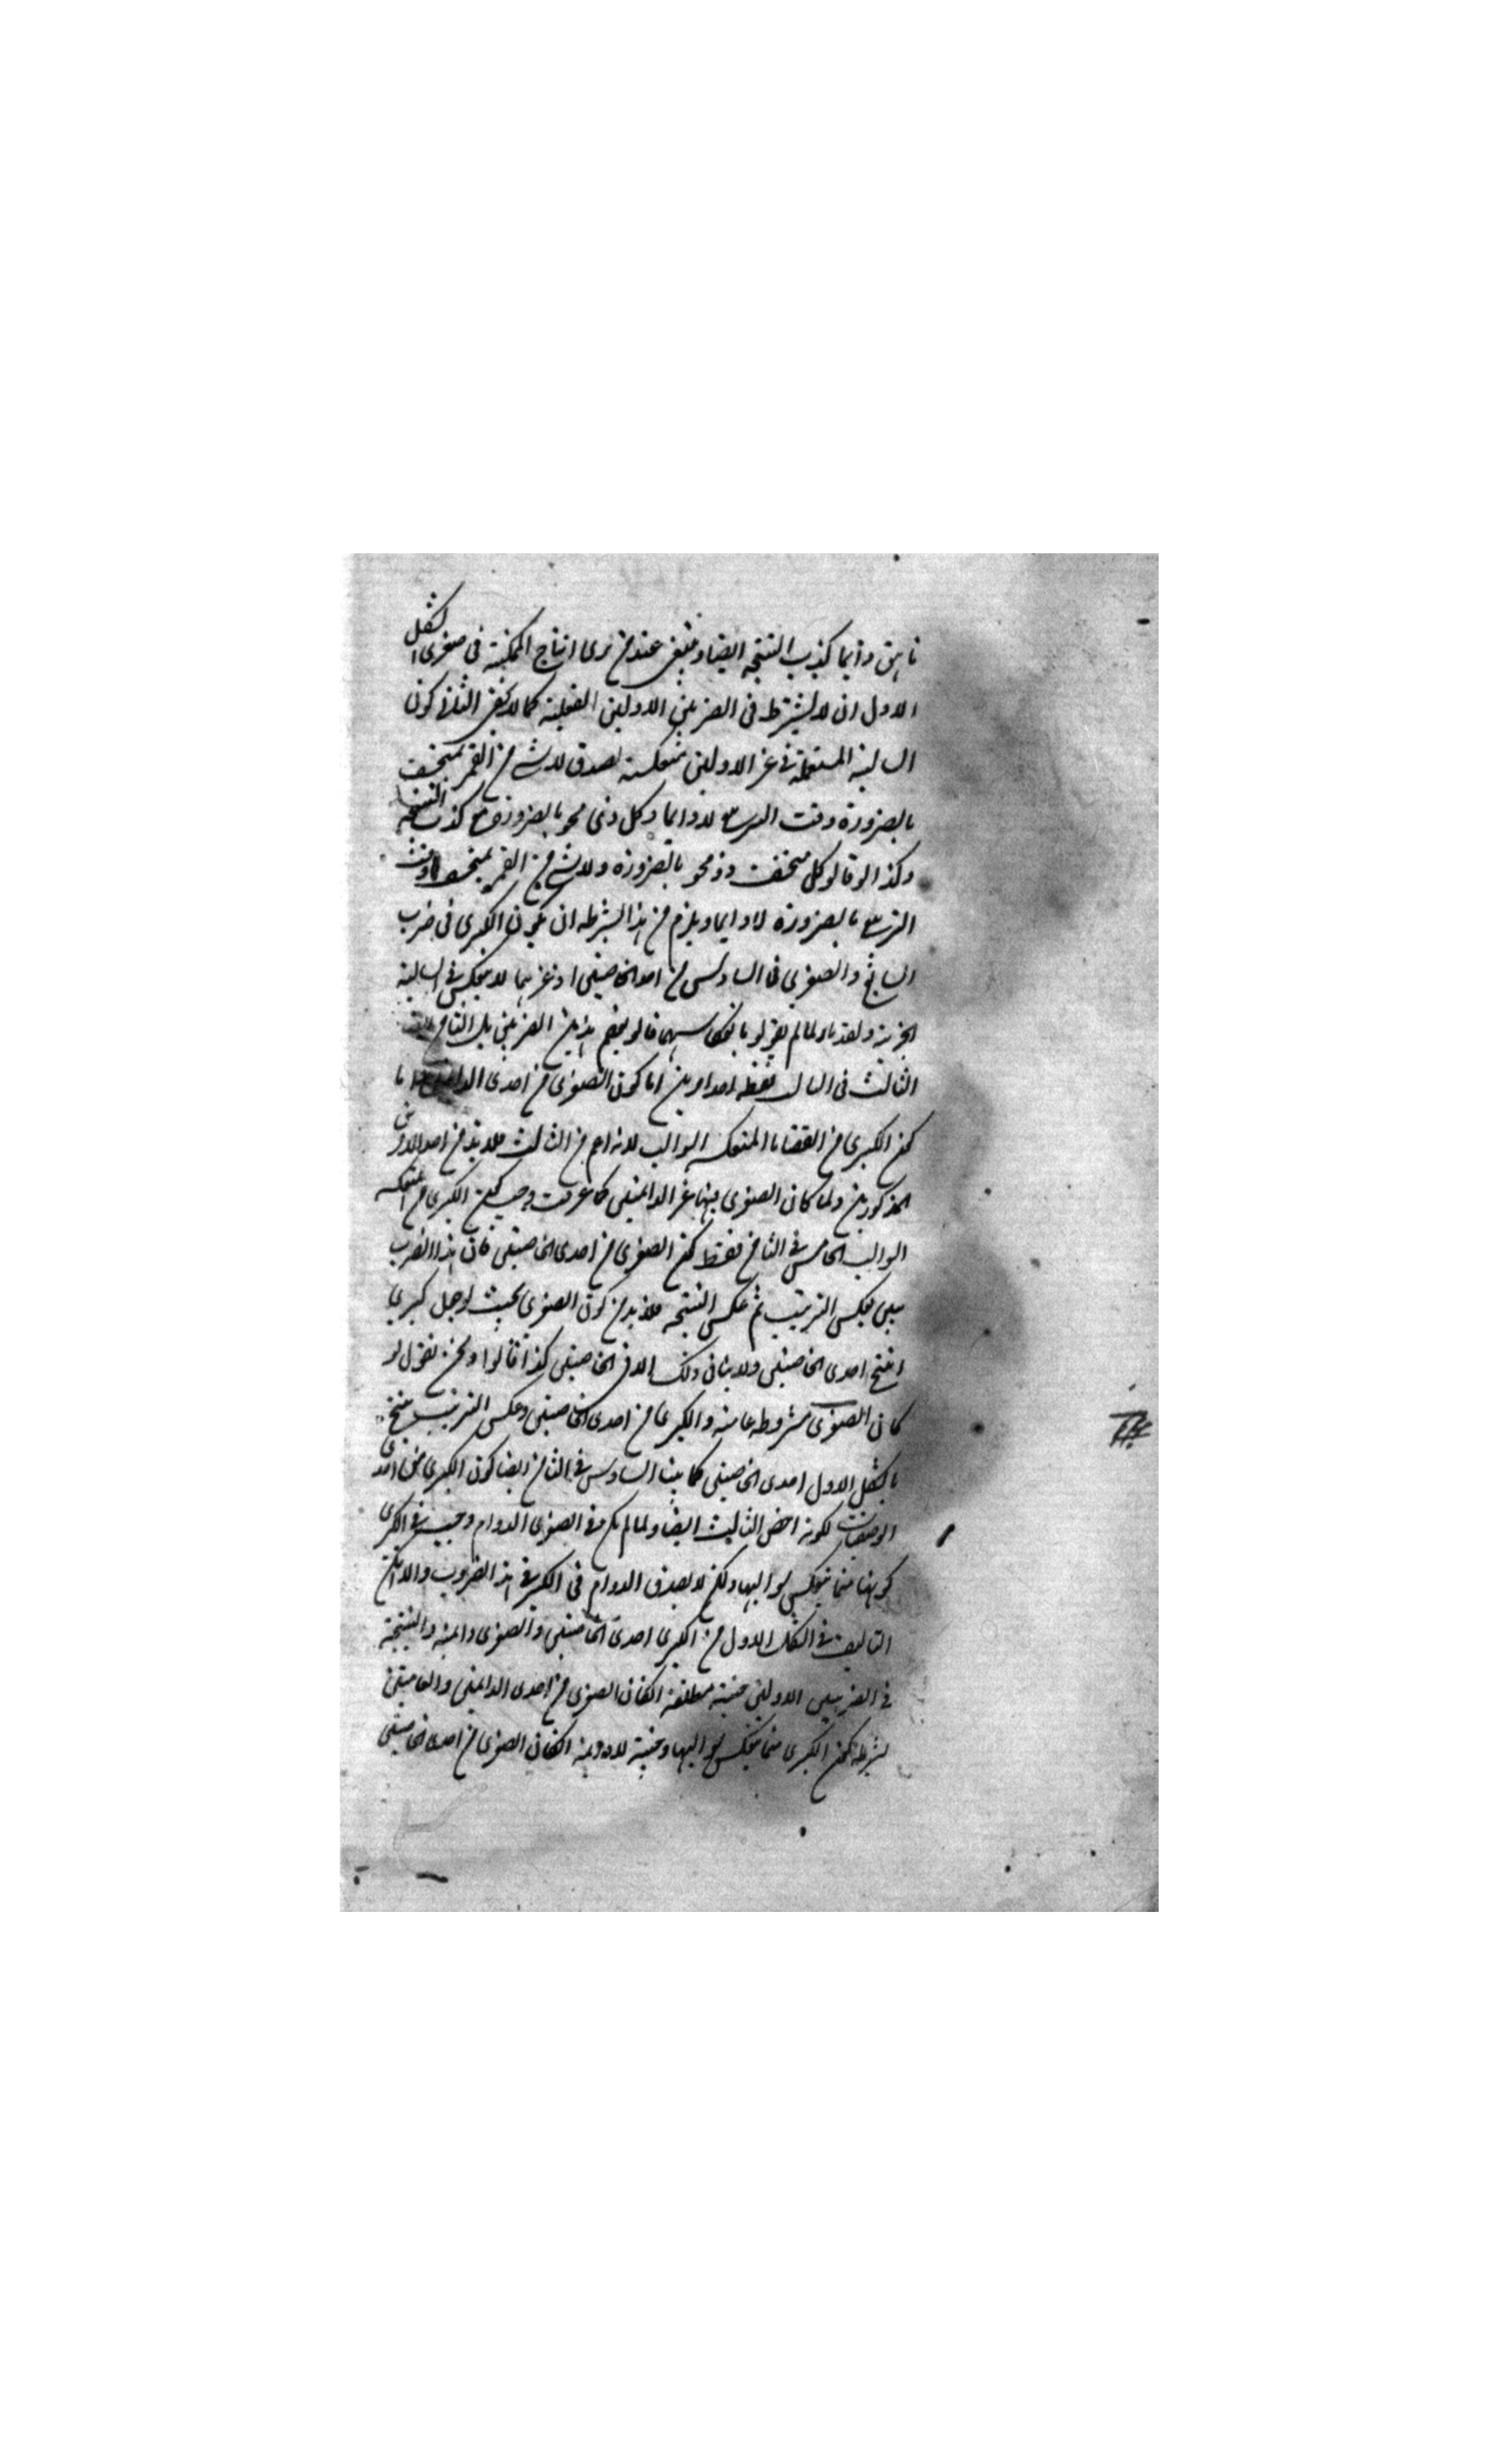 ناهق دايما كذب النتيجة ايضا وينبغى عند من يرى انتاج الممكنة فى صغرى الشكل
الاول ان لا يشترط فى الضربين الاولين الفعلية كما لا يخفى الثلاثة كون
السالبة المستعملة فى غير الاولين منعكسة لصدق لا شئ من القمر بمنخسف
بالضرورة وقت التربيع لا دايما وكل ذى محو بالضرورة مع كذب النتيجة
وكذا لو قالوا كل منخسف ذو محو بالضرورة ولا شئ من القمر بمنخسف وقت
التربيع بالضرورة لا دايما ويلزم من هذا الشرط ان يكون الكبرى فى ضرب
السابع والصغرى فى السادس من احد الخاصتين اذ غيرهما لا ينعكس فى السالبة
الجزئية والقدماء لما لم يقولوا بانعكاسهما قالوا بعقم هذين الضربين بل الثامن
الثالث فى السالبة فقط احد امرين اما كون الصغرى من احدى الدائمتين او اما
كون الكبرى من القضايا المنعكسة السوالب لانه اعم من الثالث فلا بد من احد الامرين
المذكورين ولما كان الصغرى فيها غير الدائمتين كما عرفت وجب كون الكبرى من المنعكسة
السوالب الخامس فى الثامن فقط كون الصغرى من احدى الخاصتين فان هذا الضرب
يبين بعكس الترتيب ثم عكس النتيجة فلا بد من كون الصغرى بحيث لو جعل كبرى
انتج احدى الخاصتين ولا يتاتى ذلك الا فى الخاصتين كذا قالوا ونحن نقول لو
كان الصغرى مشروطة عامة والكبرى من احدى الخاصتين وعكس الترتيب ينتج
بالشكل الاول احدى الخاصتين كما بينا السادس فى الثامن ايضا كون الكبرى من احدى
الوصفيات لكونه اخص الثالث ايضا ولما لم يكن فى الصغرى الدوام وجب فى الكبرى
كونها مما ينعكس سوالبها ولكن لا يصدق الدوام فى الكبرى فى هذا الضروب والا يمكن
التاليف فى الشكل الاول من الكبرى احدى الخاصتين والصغرى دائمة والنتيجة
فى الضربين الاولين حينية مطلقة ان كان الصغرى من احدى الدائمتين والعامتين
بشرط كون الكبرى مما ينعكس سوالبها وحينية لا دائمة ان كان الصغرى من احدى الخاصتين